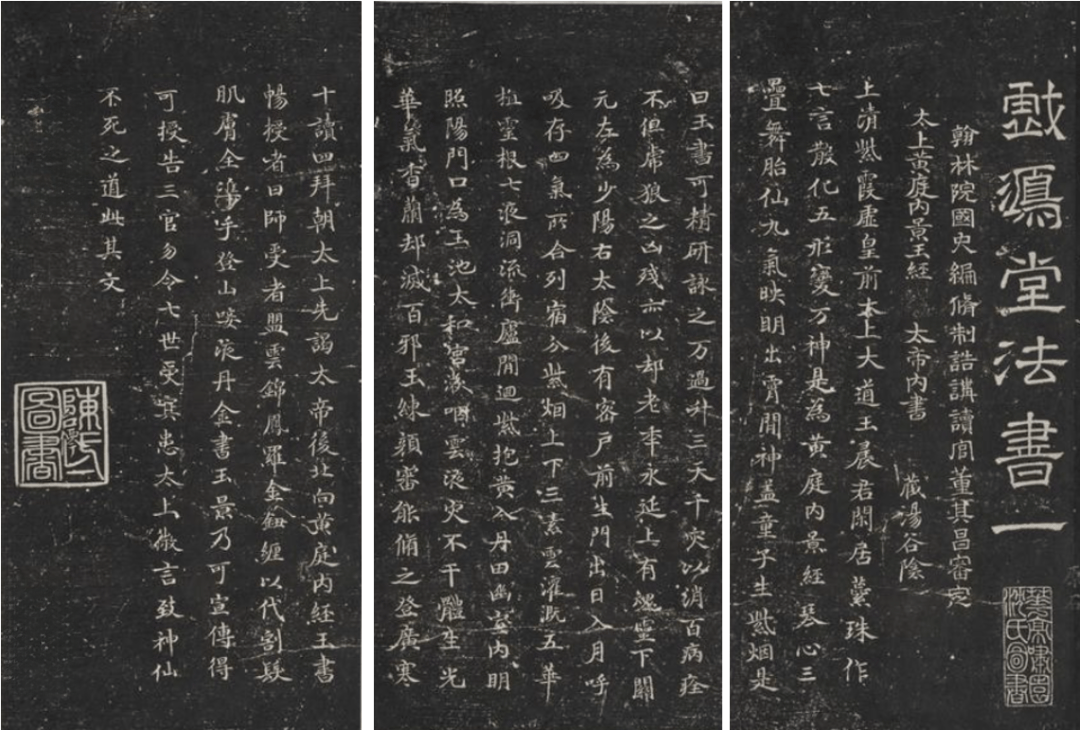 戲鴻堂法書一
翰林院國史編脩制誥講讀官董其昌審定
太上黃庭內景玉經 太帝內書 藏湯谷陰
上清紫霞虛皇前太上大道玉晨君閑居蘂珠作
七言散化五形變万神是為黃庭內景經琴心三
疊舞胎仙九氣映明出霄間神蓋童子生紫烟是
曰玉書可精研詠之万過升三天千灾以消百病痊
不憚虎狼之凶殘亦以却老年永延上有魂靈下關
元左為少陽右太陰後有密戶前生門出日入月呼
吸存四氣所合列宿分紫烟上下三素雲灌溉五華
植靈根七液洞流衝廬間迴紫抱黃入丹田幽室內明
照陽門口為玉池太和宮漱咽靈液灾不干體生光
華氣香蘭却滅百邪玉練顏審能脩之登廣寒
十讀四拜朝太上先謁太帝後北向黃庭內經玉書
暢授者曰師受者盟雲錦鳳羅金鈕纏以代割髮
肌膚全攜手登山歃液丹金書玉景乃可宣傳得
可授告三官勿令七世受冥患太上微言致神仙
不死之道此其文
陳氏圖書